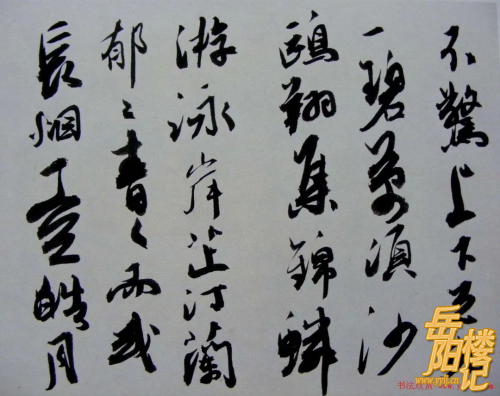 不驚上下天
一碧萬頃沙
鷗翔集錦鱗
游泳岸芷汀蘭
郁々青々而或
長烟一空皓月
岳阳楼记
www.yylj.cn